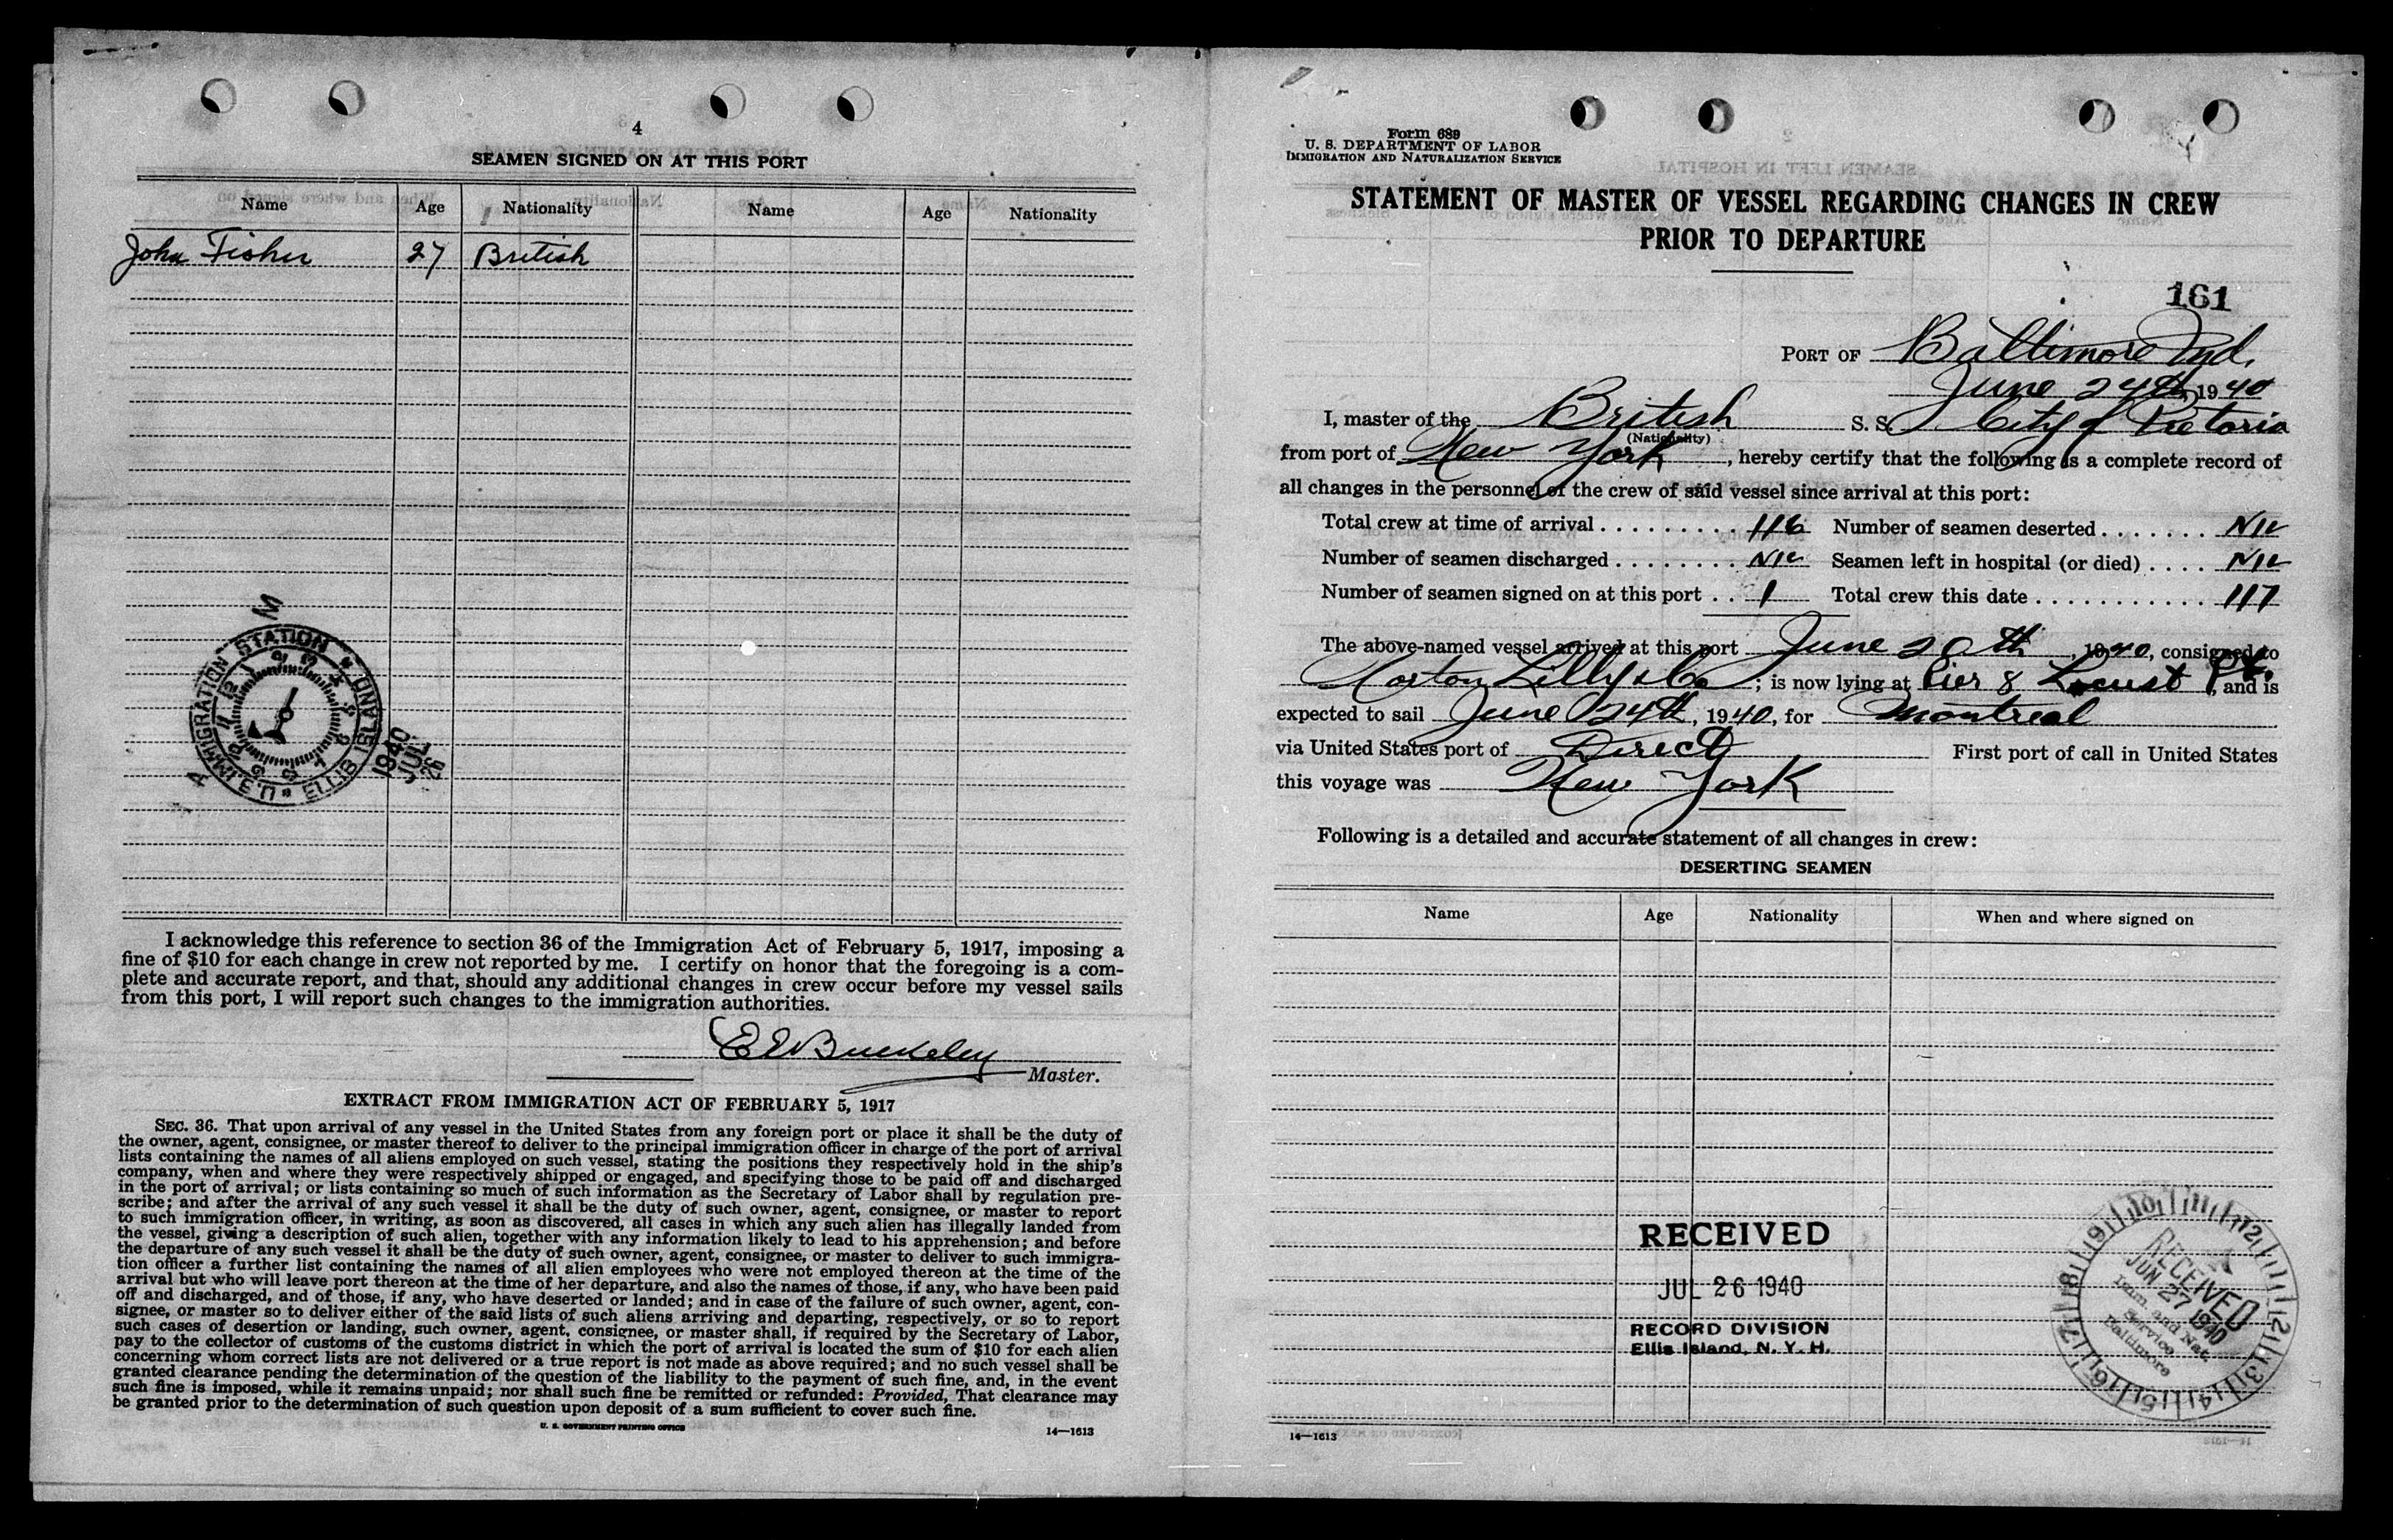 4
SEAMEN SIGNED ON AT THIS PORT
Name Age Nationality Name Age Nationality
John Fisher 27 British
U.S. IMMIGRATION STATION * ELLIS ISLAND *
1940
JUL
26
A M
I acknowledge this reference to section 36 of the Immigration Act of February 5, 1917, imposing a
fine of $10 for each change in crew not reported by me. I certify on honor that the foregoing is a com-
plete and accurate report, and that, should any additional changes in crew occur before my vessel sails
from this port, I will report such changes to the immigration authorities.
Master.
EXTRACT FROM IMMIGRATION ACT OF FEBRUARY 5, 1917
SEC. 36. That upon arrival of any vessel in the United States from any foreign port or place it shall be the duty of
the owner, agent, consignee, or master thereof to deliver to the principal immigration officer in charge of the port of arrival
lists containing the names of all aliens employed on such vessel, stating the positions they respectively hold in the ship's
company, when and where they were respectively shipped or engaged, and specifying those to be paid off and discharged
in the port of arrival; or lists containing so much of such information as the Secretary of Labor shall by regulation pre-
scribe; and after the arrival of any such vessel it shall be the duty of such owner, agent, consignee, or master to report
to such immigration officer, in writing, as soon as discovered, all cases in which any such alien has illegally landed from
the vessel, giving a description of such alien, together with any information likely to lead to his apprehension; and before
the departure of any such vessel it shall be the duty of such owner, agent, consignee, or master to deliver to such immigra-
tion officer a further list containing the names of all alien employees who were not employed thereon at the time of the
arrival but who will leave port thereon at the time of her departure, and also the names of those, if any, who have been paid
off and discharged, and of those, if any, who have deserted or landed; and in case of the failure of such owner, agent, con-
signee, or master so to deliver either of the said lists of such aliens arriving and departing, respectively, or so to report
such cases of desertion or landing, such owner, agent, consignee, or master shall, if required by the Secretary of Labor,
pay to the collector of customs of the customs district in which the port of arrival is located the sum of $10 for each alien
concerning whom correct lists are not delivered or a true report is not made as above required; and no such vessel shall be
granted clearance pending the determination of the question of the liability to the payment of such fine, and, in the event
such fine is imposed, while it remains unpaid; nor shall such fine be remitted or refunded: Provided, That clearance may
be granted prior to the determination of such question upon deposit of a sum sufficient to cover such fine.
U. S. GOVERNMENT PRINTING OFFICE 14—1613
Form 689
U. S. DEPARTMENT OF LABOR
IMMIGRATION AND NATURALIZATION SERVICE
STATEMENT OF MASTER OF VESSEL REGARDING CHANGES IN CREW
PRIOR TO DEPARTURE
161
PORT OF Baltimore Md.
June 24th, 1940
I, master of the British S. S. City of Pretoria
(Nationality)
from port of New York, hereby certify that the following is a complete record of
all changes in the personnel of the crew of said vessel since arrival at this port:
Total crew at time of arrival . . . . . . . . . 116 Number of seamen deserted . . . . . . . Nil
Number of seamen discharged . . . . . . . . Nil Seamen left in hospital (or died) . . . . Nil
Number of seamen signed on at this port . . 1 Total crew this date . . . . . . . . . . . 117
The above-named vessel arrived at this port June 20th, 1940, consigned to
Norton Lilly & Co; is now lying at Pier 8 Locust Pt., and is
expected to sail June 24th, 1940, for Montreal
via United States port of Direct First port of call in United States
this voyage was New York
Following is a detailed and accurate statement of all changes in crew:
DESERTING SEAMEN
Name Age Nationality When and where signed on
RECEIVED
JUL 26 1940
RECORD DIVISION
Ellis Island, N. Y. H.
RECEIVED
JUN 27 1940
Imm. and Nat.
Service
Baltimore
14—1613